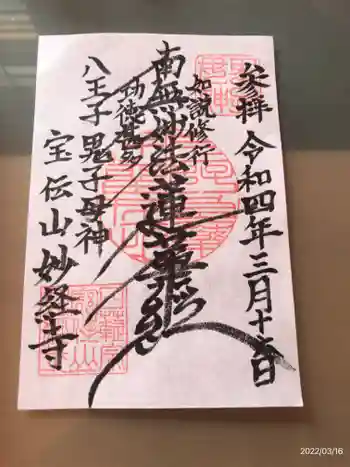 参拝 令和四年三月十六日
如説修行
南無妙法蓮華経
功徳甚多
八王子 鬼子母神
宝伝山 妙経寺
2022/03/16